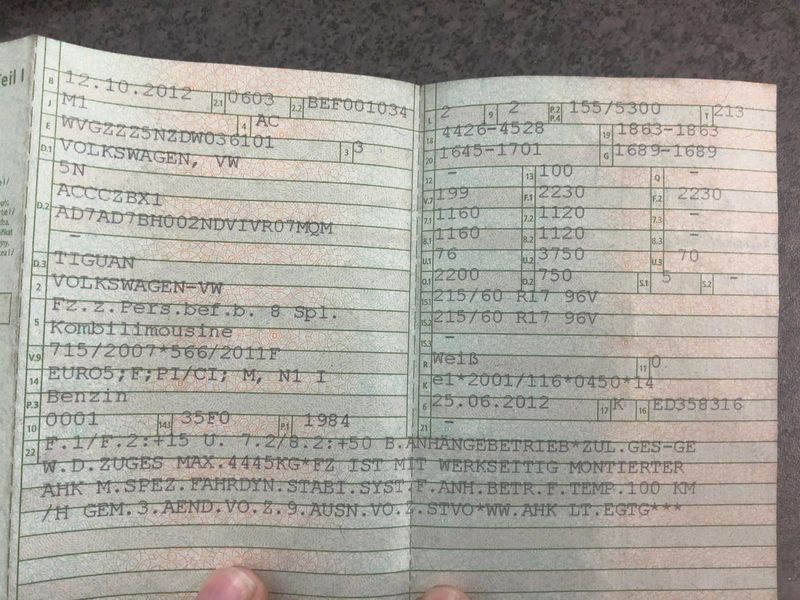 Teil I
B 12.10.2012 2.1 0603 2.2 BEF001034
J M1 4 AC
E WVGZZZ5NZDW036101 3 3
D.1 VOLKSWAGEN, VW
5N
D.2 ACCCZBX1
AD7AD7BH002NDVIVR07MQM
-
D.3 TIGUAN
2 VOLKSWAGEN-VW
5 Fz.z.Pers.bef.b. 8 Spl.
Kombilimousine
V.9 715/2007*566/2011F
14 EURO5;F;PI/CI; M, N1 I
P.3 Benzin
10 0001 14.1 35F0 P.1 1984
L 2 9 2 P.2 P.4 155/5300 T 213
18 4426-4528 19 1863-1863
20 1645-1701 G 1689-1689
12 - 13 100 Q -
V.7 199 F.1 2230 F.2 2230
7.1 1160 7.2 1120 7.3 -
8.1 1160 8.2 1120 8.3 -
U.1 76 U.2 3750 U.3 70
O.1 2200 O.2 750 S.1 5 S.2 -
15.1 215/60 R17 96V
15.2 215/60 R17 96V
15.3 -
R Weiß 11 0
K e1*2001/116*0450*14
6 25.06.2012 17 K 16 ED358316
21 -
22 F.1/F.2:+15 U. 7.2/8.2:+50 B.ANHÄNGEBETRIEB*ZUL.GES-GE
W.D.ZUGES MAX.4445KG*FZ IST MIT WERKSEITIG MONTIERTER
AHK M.SPEZ.FAHRDYN.STABI.SYST.F.ANH.BETR.F.TEMP.100 KM
/H GEM.3.AEND.VO.Z.9.AUSN.VO.Z.STVO*WW.AHK LT.EGTG***